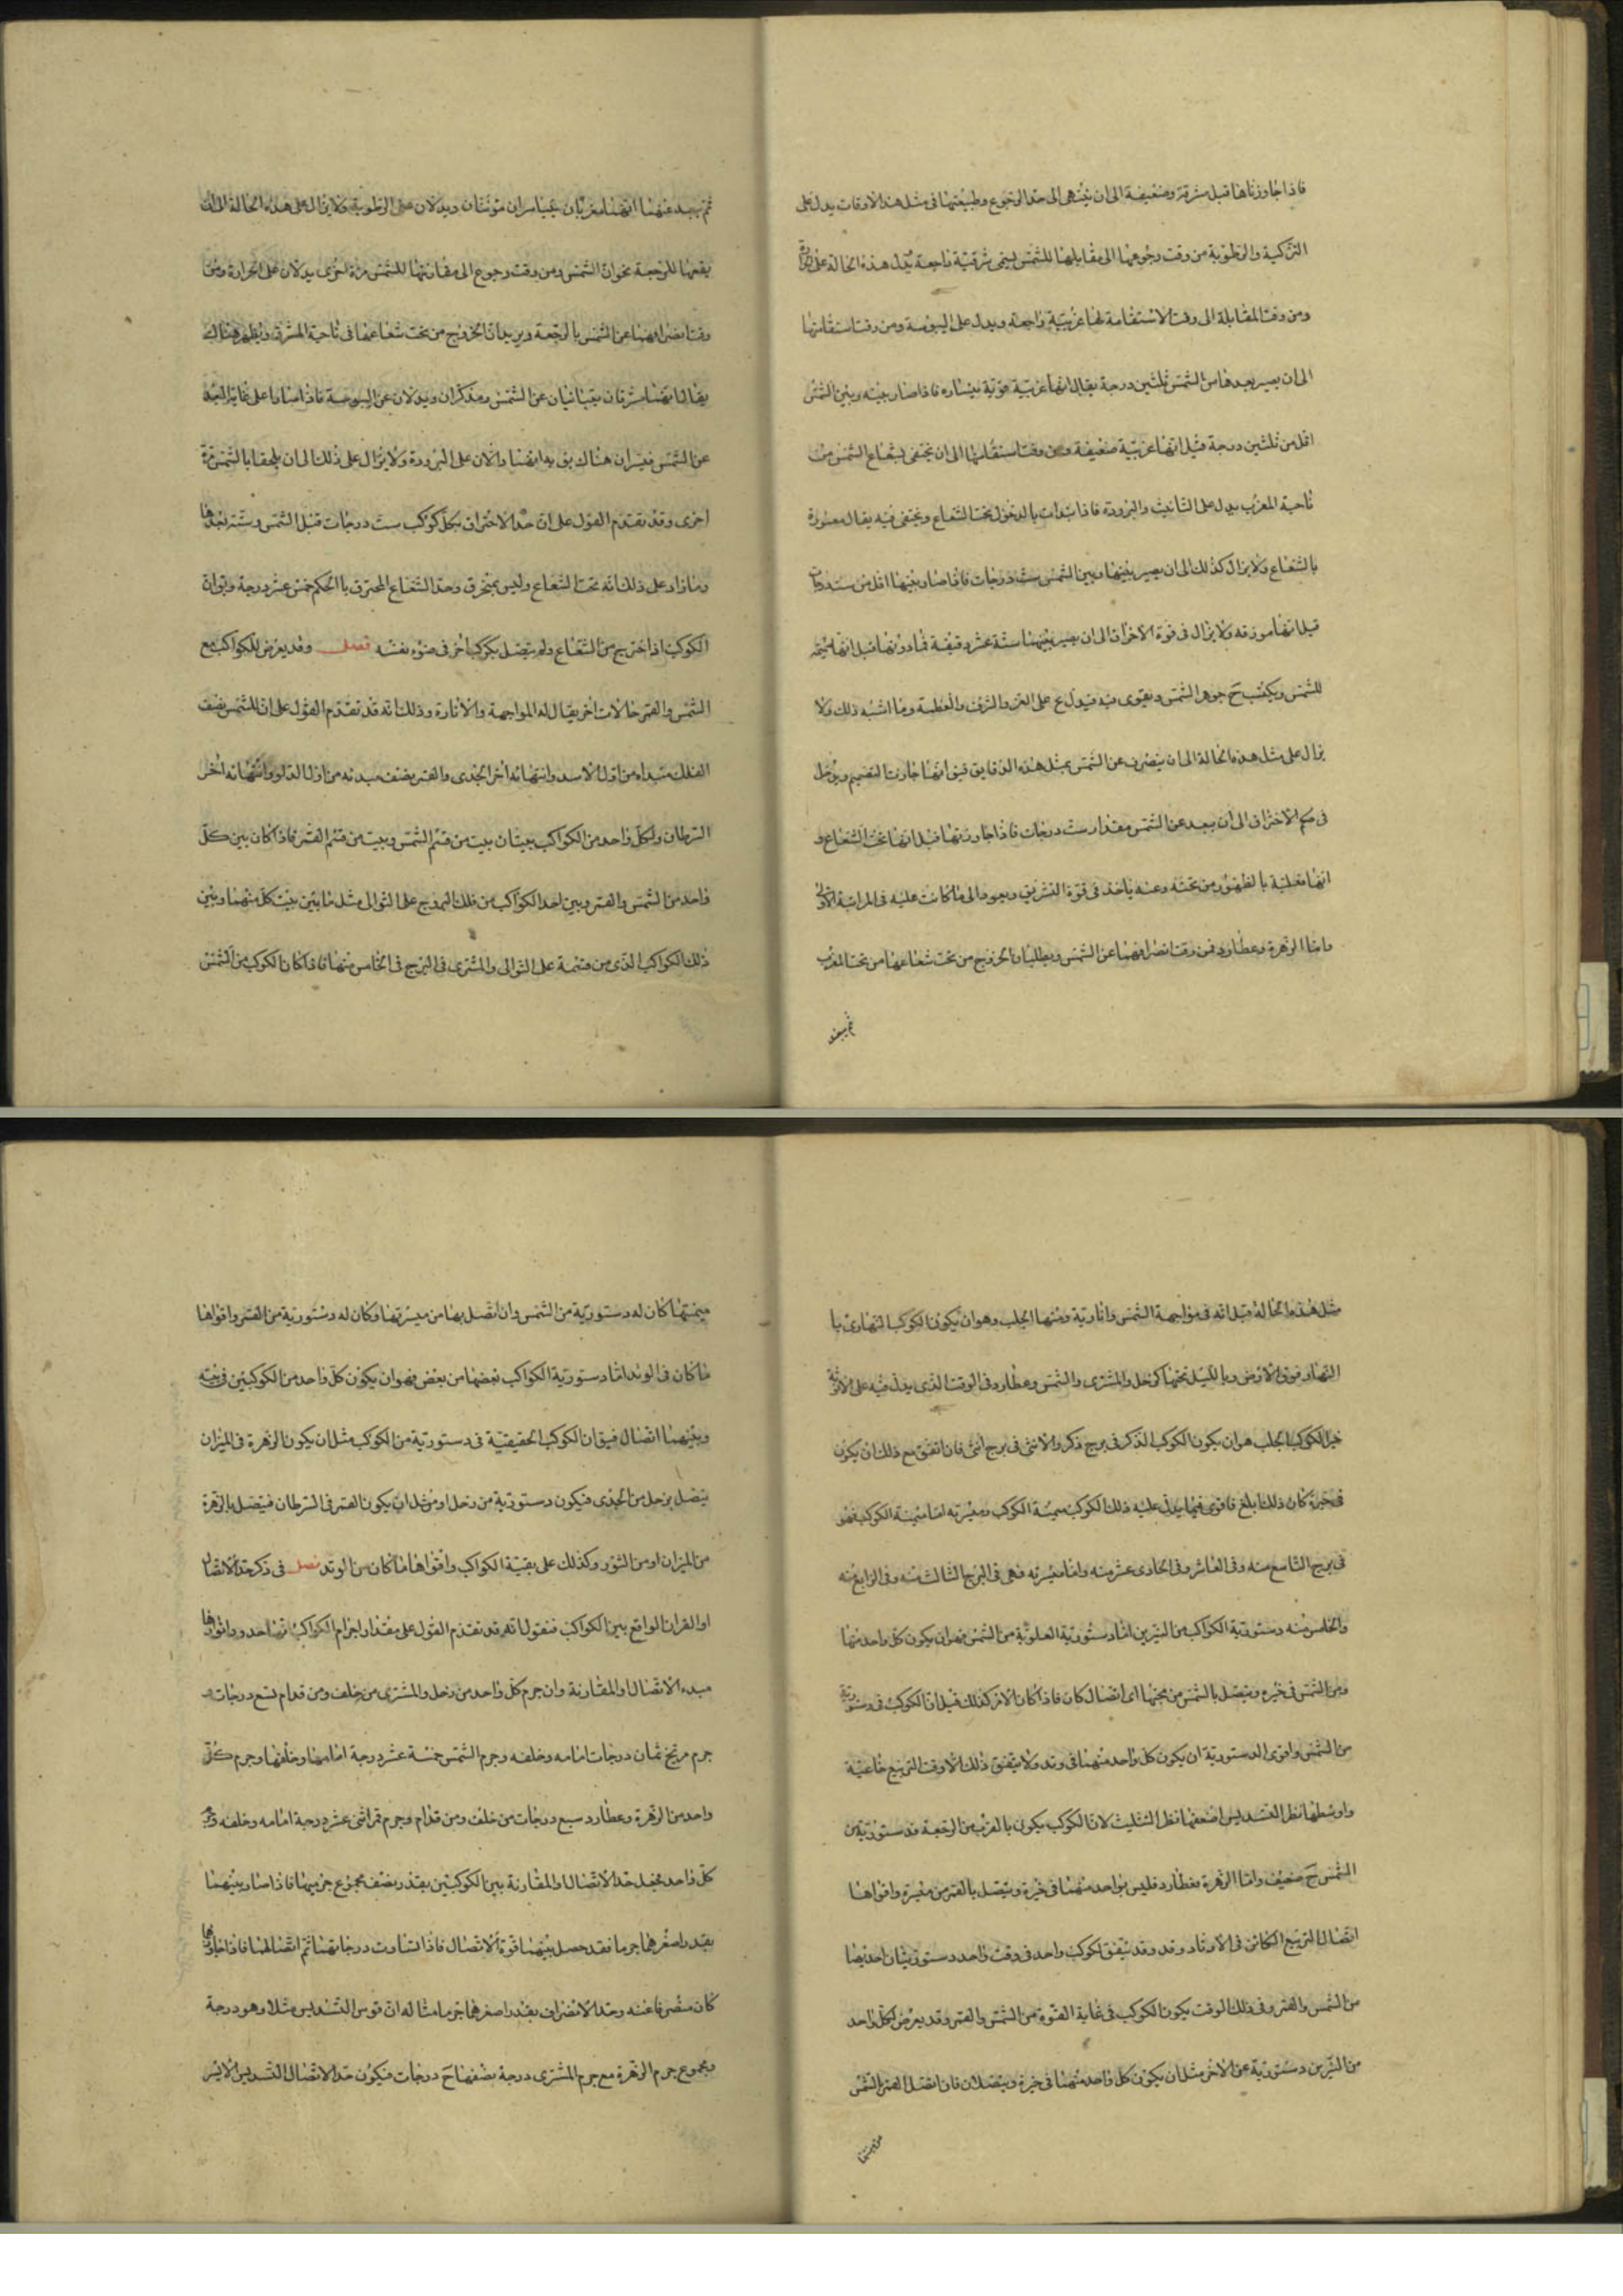 فاذا جاوزناها قبل مشرقة وضعيفة الى ان ينتهى الى حدّ الرّجوع وطبيعتها فى مثل هذه الاوقات يدل على
التركية والرّطوبة من وقت رجوعها الى مقابلها للشّمس ليمى شرقيّة راجعة تدل هذه الحالة على
ومن وقت المقابلة الى وقت الاستقامة لها غربيّة راجعة ويدل على اليبوسة ومن وقت استقامتها
الى ان يصير بعدها من الشّمس ثلثين درجة يقال انها غربيّة قويّة يساره فاذا صار بينه وبين الشّمس
اقل من ثلثين درجة قيل انها غربيّة ضعيفة ومن وقت استقامتها الى ان يختفى بشعاع الشّمس من
ناحية المغرب يدل على التانيث والبرودة فاذا بدات بالدخول تحت الشّعاع ويختفى فيه يقال مغمورة
بالشّعاع ولا يزال كذلك الى ان يصير بينها وبين الشّمس ستّ درجات فاذا صار بينها اقل من ست درجات
قيل انها ولا يزال فى قوة الاحتراق الى ان يصير بينهما ستّة عشر دقيقة فما دونها قيل انها
للشّمس ويكتسب ح جوهر الشّمس ويقوى فيدل ع على العز والشرف والعظمة وما اشبه ذلك ولا
يزال على مثل هذه الحالة الى ان ينصرف عن الشّمس بمثل هذه الدقايق فيق انها جاوزت التصميم ويدخل
فى حكم الاحتراق الى ان يبعد عن الشّمس مقدار ستّ درجات فاذا جاوزتها قيل انها تحت الشّعاع و
انها بالظهور من تحته وعنه ياخذ فى قوة التشريق ويعود الى ما كانت عليه فى المراتبة الاولى
وامّا الزهرة وعطارد فمن وقت انصرافهما عن الشّمس ويطلبان الخروج من تحت شعاعها من تحت المغرب
ثم يبعد
ثم يبعد عنهما انهما مغربان مونثان ويدلان على الرطوبة ولا يزال على هذه الحالة الى ان
يقعها للرجعة نحو ان الشّمس ومن وقت رجوع الى مقارنتها للشّمس مرة اخرى يدلان على الحرارة ومن
وقت انصرافهما عن الشّمس بالرّجعة ويريدان الخروج من تحت شعاعها فى ناحية المشرق ويظهر هنالك
يقال انهما شرقان عن الشّمس ومذكران ويدلان عن اليبوسة فاذا صارا على غاية البعد
عن الشّمس فيران هناك بق انهما دالان على البرودة ولا يزال على ذلك الى ان يلحقا بالشّمس مرة
اخرى وقد تقدّم القول على ان حدّ الاحتراق بكلّ كوكب ستّ درجات قبل الشّمس وستّة بعدها
وما زاد على ذلك انه تحت الشّعاع وليس بمحترق وحدّ الشّعاع المحترق بالحكم خمس عشر درجة وبق ان
الكوكب اذا خرج من الشّعاع ولم يتصل بكوكب اخر فى ضوء نفسه فصل وقد يعرض للكواكب مع
الشّمس والقمر حالات اخر يقال له المواجهة والاثارة وذلك انه قد تقدّم القول على ان للشّمس نصف
الفلك مبداه من اول الاسد وانتهائه اخر الجدى والقمر نصف مبدئه من اول الدّلو وانتهائه اخر
السّرطان ولكلّ واحد من الكواكب بيتان بيت من قسم الشّمس وبيت من قسم القمر فاذا كان بين كلّ
واحد من الشّمس والقمر وبين احد الكواكب من فلك البروج على التوالى مثل ما بين بيت كلّ منهما وبين
ذلك الكواكب الذى من قسمة على التوالى والمشترى فى البرج فى الخامس منها فاذا كان الكوكب من الشّمس
مثل هذه الحالة قيل انه فى مواجهة الشّمس واثارية ومنها الحلب وهو ان يكون الكوكب النهارى با
النّهار فوق الارض وبالليل تحتها كزحل والمشترى والشّمس وعطارد فى الوقت الذى يدل فيه على الذكورة
خيز الكوكب الحلب هو ان يكون الكوكب الذكر فى برج ذكر والانثى فى برج انثى فان اتفق مع ذلك ان يكون
فى حيزه كان ذلك ابلغ واقوى فيما يدل عليه ذلك الكوكب ميمنة الكوكب وميسرته امّا ميمنة الكوكب فهو
فى برج التاسع منه وفى العاشر وفى الحادى عشر منه وامّا ميسرته فهى فى البرج الثالث منه وفى الرابع منه
والخامس منه دستوريّة الكواكب من النيّرين امّا دستوريّة العلويّة من الشّمس فهو ان يكون كلّ واحد منها
ومن الشّمس فى حيزه ويتصل بالشّمس من يمينها اى اتصال كان فاذا كان الامر كذلك قيل ان الكوكب فى دستوريّة
من الشّمس واقوى الدستوريّة ان يكون كل واحد منهما فى وتد ولا يتفق ذلك الّا وقت التربيع
واوسطها نظر التسديس اضعفها نظر التثليث لان الكوكب يكون بالقرب من الرجعة فدستوريّة من
الشّمس ح ضعيف وامّا الزهرة بعطارد فليس بواحد منهما فى حيزه ويتصل بالقمر من ميسرة واقواها
اتصال التربيع الكائن فى الاوتاد وقد وقد يتفق لكوكب واحد فى وقت واحد دستوريتان احديهما
من الشّمس والقمر وفى ذلك الوقت يكون الكوكب فى غاية القوّة من الشّمس والقمر وقد يعرض لكلّ واحد
من النيّرين دستوريّة عن الاخر مثل ان يكون كلّ واحد منهما فى حيزه ويتصلان فان اتصل القمر الشّمس
من يمينها
ميمنتها كان له دستوريّة من الشّمس وان اتصل بها من ميسرتها وكان له دستوريّة من القمر واقواها
ما كان فى الوتد امّا دستوريّة الكواكب بعضها من بعض فهو ان يكون كلّ واحد من الكوكبين فى بيته
وبينهما اتصال فيق ان الكوكب الحقيقيّة فى دستوريّة من الكوكب مثل ان يكون الزهرة فى الميزان
يتصل بزحل من الجدى فيكون دستوريّة من زحل او مثل ان يكون القمر فى السّرطان فيتصل بالزّهرة
من الميزان او من الثور وكذلك على بقيّة الكواكب واقواها ما كان من الوتد فصل فى ذكر حدّ الاتصال
او القران الواقع بين الكواكب فنقول انه قد تقدّم القول على مقدار اجرام الكواكب انها حدود وانوارها
مبدء الاتصال والمقارنة وان جرم كلّ واحد من زحل والمشترى من خلف ومن قدام تسع درجات و
جرم مريخ ثمان درجات امامه وخلفه وجرم الشّمس خمسة عشر درجة امامها وخلفها وجرم كلّ
واحد من الزّهرة وعطارد سبع درجات من خلف ومن قدّام وجرم قمر اثنى عشر درجة امامه وخلفه
كلّ واحد فيجعل حدّ الاتصال والمقارنة بين الكوكبين بقدر نصف مجموع جرميهما فاذا صار بينهما
بقدر اصغرهما جرما فقد حصل بينهما قوة الاتصال فاذا تساوت درجاتهما تمّ اتصالهما فاذا جاوزها
كان منصرفا عنه وحدّ الانصراف بقدر اصغرهما جرما مثاله انّ قوس التّسديس مثلا وهو درجة
ومجموع جرم الزهرة مع جرم المشترى درجة نصفها ح درجات فيكون حدّ الاتصال التّسديس الايسر